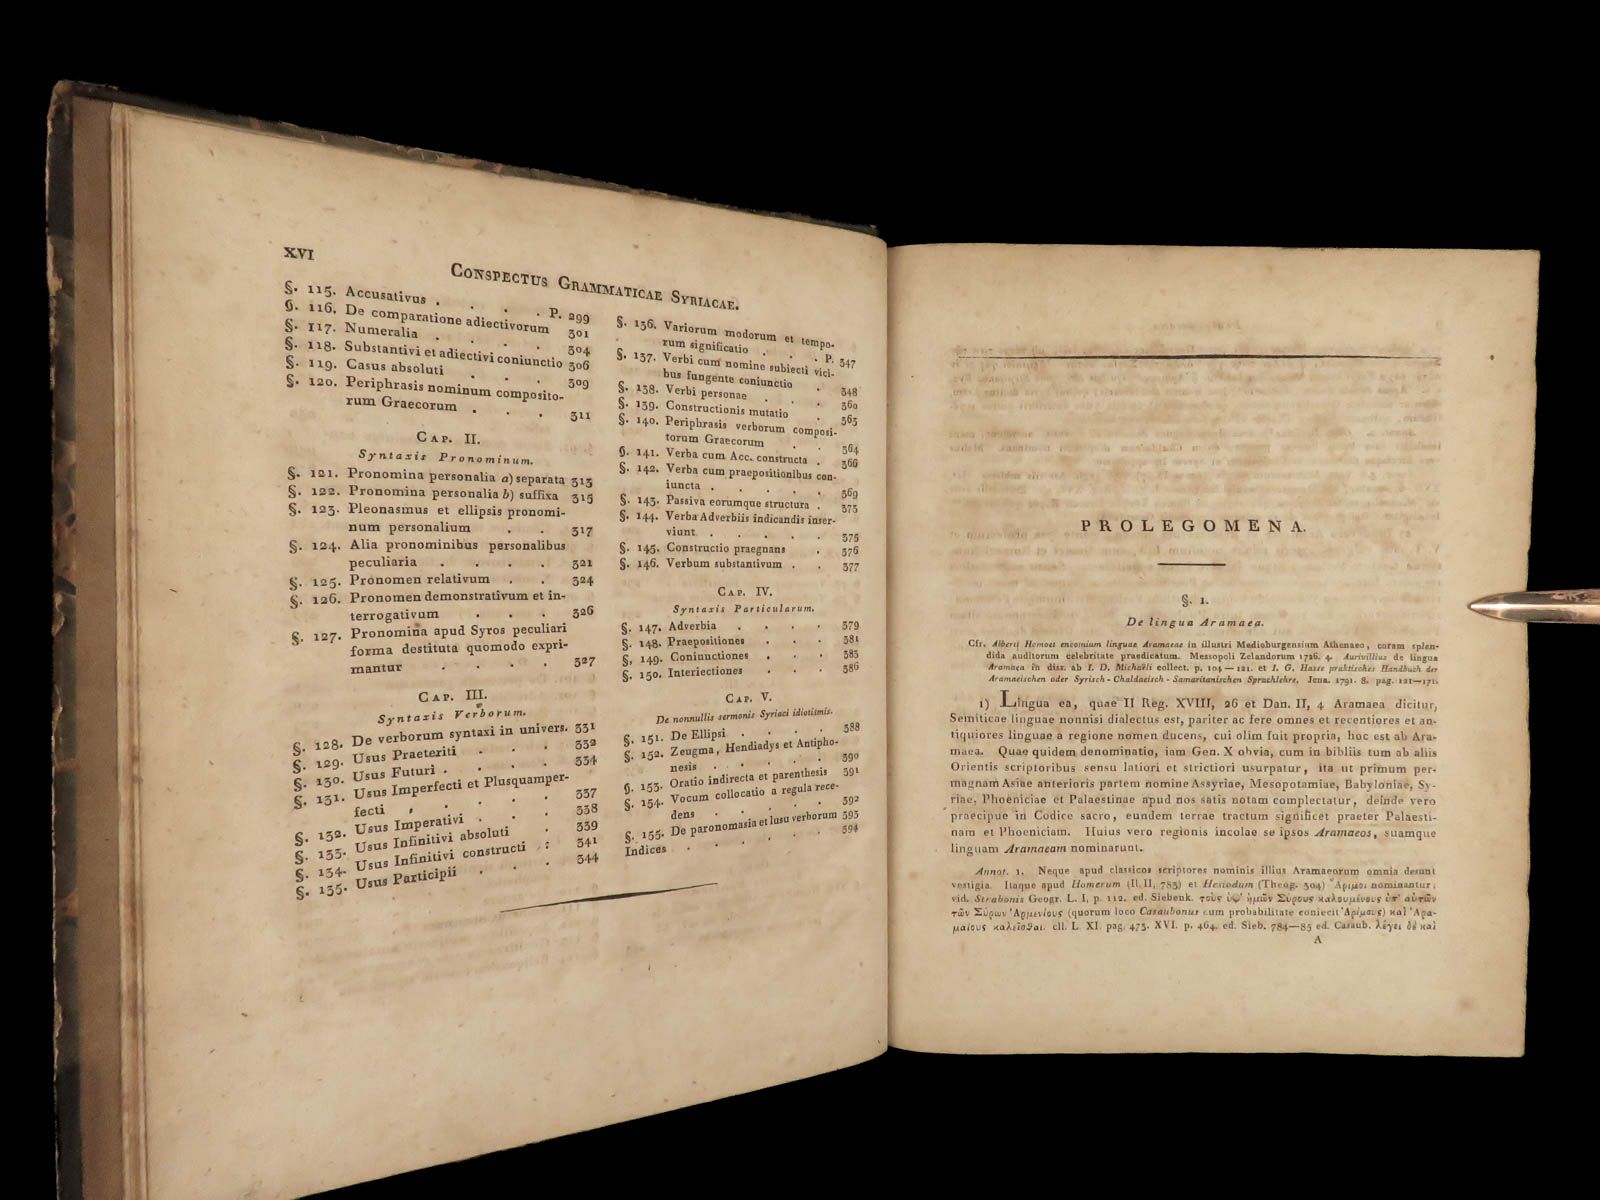 XVI
CONSPECTUS GRAMMATICAE SYRIACAE.
§. 115. Accusativus . . . . P. 299
§. 116. De comparatione adiectivorum 301
§. 117. Numeralia . . . . 304
§. 118. Substantivi et adiectivi coniunctio 306
§. 119. Casus absoluti . . . 309
§. 120. Periphrasis nominum composito-
rum Graecorum . . . 311
CAP. II.
Syntaxis Pronominum.
§. 121. Pronomina personalia a) separata 313
§. 122. Pronomina personalia b) suffixa 315
§. 123. Pleonasmus et ellipsis pronomi-
num personalium . . 317
§. 124. Alia pronominibus personalibus
peculiaria . . . . 321
§. 125. Pronomen relativum . . 324
§. 126. Pronomen demonstrativum et in-
terrogativum . . . 326
§. 127. Pronomina apud Syros peculiari
forma destituta quomodo expri-
mantur . . . . 327
CAP. III.
Syntaxis Verborum.
§. 128. De verborum syntaxi in univers. 331
§. 129. Usus Praeteriti . . . 332
§. 130. Usus Futuri . . . . 334
§. 131. Usus Imperfecti et Plusquamper-
fecti . . . . . 337
§. 132. Usus Imperativi . . . 338
§. 133. Usus Infinitivi absoluti . 339
§. 134. Usus Infinitivi constructi . : 341
§. 135. Usus Participii . . 344
§. 136. Variorum modorum et tempo-
rum significatio . . . P. 347
§. 137. Verbi cum nomine subiecti vici-
bus fungente coniunctio . 348
§. 138. Verbi personae . . . 360
§. 139. Constructionis mutatio . 363
§. 140. Periphrasis verborum composi-
torum Graecorum . . 364
§. 141. Verba cum Acc. constructa . 366
§. 142. Verba cum praepositionibus con-
iuncta . . . . . 369
§. 143. Passiva eorumque structura . 373
§. 144. Verba Adverbiis indicandis inser-
viunt . . . . . 375
§. 145. Constructio praegnans . 376
§. 146. Verbum substantivum . . 377
CAP. IV.
Syntaxis Particularum.
§. 147. Adverbia . . . . 379
§. 148. Praepositiones . . . 381
§. 149. Coniunctiones . . . 383
§. 150. Interiectiones . . . 386
CAP. V.
De nonnullis sermonis Syriaci idiotismis.
§. 151. De Ellipsi . . . . 388
§. 152. Zeugma, Hendiadys et Antipho-
nesis . . . . . 390
§. 153. Oratio indirecta et parenthesis 391
§. 154. Vocum collocatio a regula rece-
dens . . . . . 392
§. 155. De paronomasia et lusu verborum 393
Indices . . . . . 394
PROLEGOMENA.
§. 1.
De lingua Aramaea.
Cfr. Alberti Homoet encomium linguae Aramaeae in illustri Medioburgensium Athenaeo, coram splen-
dida auditorum celebritate praedicatum. Messopoli Zelandorum 1726. 4. Aurivillius de lingua
Aramaea in diss. ab I. D. Michaëli collect. p. 104—121. et I. G. Hasse praktisches Handbuch der
Aramaeischen oder Syrisch-Chaldaeisch-Samaritanischen Sprachlehre. Jena. 1791. 8. pag. 121—171.
1) Lingua ea, quae II Reg. XVIII, 26 et Dan. II, 4 Aramaea dicitur,
Semiticae linguae nonnisi dialectus est, pariter ac fere omnes et recentiores et an-
tiquiores linguae a regione nomen ducens, cui olim fuit propria, hoc est ab Ara-
maea. Quae quidem denominatio, iam Gen. X obvia, cum in bibliis tum ab aliis
Orientis scriptoribus sensu latiori et strictiori usurpatur, ita ut primum per-
magnam Asiae anterioris partem nomine Assyriae, Mesopotamiae, Babyloniae, Sy-
riae, Phoeniciae et Palaestinae apud nos satis notam complectatur, deinde vero
praecipue in Codice sacro, eundem terrae tractum significet praeter Palaesti-
nam et Phoeniciam. Huius vero regionis incolae se ipsos Aramaeos, suamque
linguam Aramaeam nominarunt.
Annot. 1. Neque apud classicos scriptores nominis illius Aramaeorum omnia desunt
vestigia. Itaque apud Homerum (Il. II, 783) et Hesiodum (Theog. 304) Ἄριμοι nominantur;
vid. Strabonis Geogr. L. I, p. 112. ed. Siebenk. τοὺς ὑφ' ἡμῶν Σύρους καλουμένους ὑπ' αὐτῶν
τῶν Σύρων Ἀρμενίους (quorum loco Casaubonus cum probabilitate coniecit Ἀρίμους) καὶ Ἀρα-
μαίους καλεῖσθαι. cll. L. XI. pag. 473. XVI. p. 464. ed. Sieb. 784—85 ed. Casaub. λέγει δὲ καὶ
A